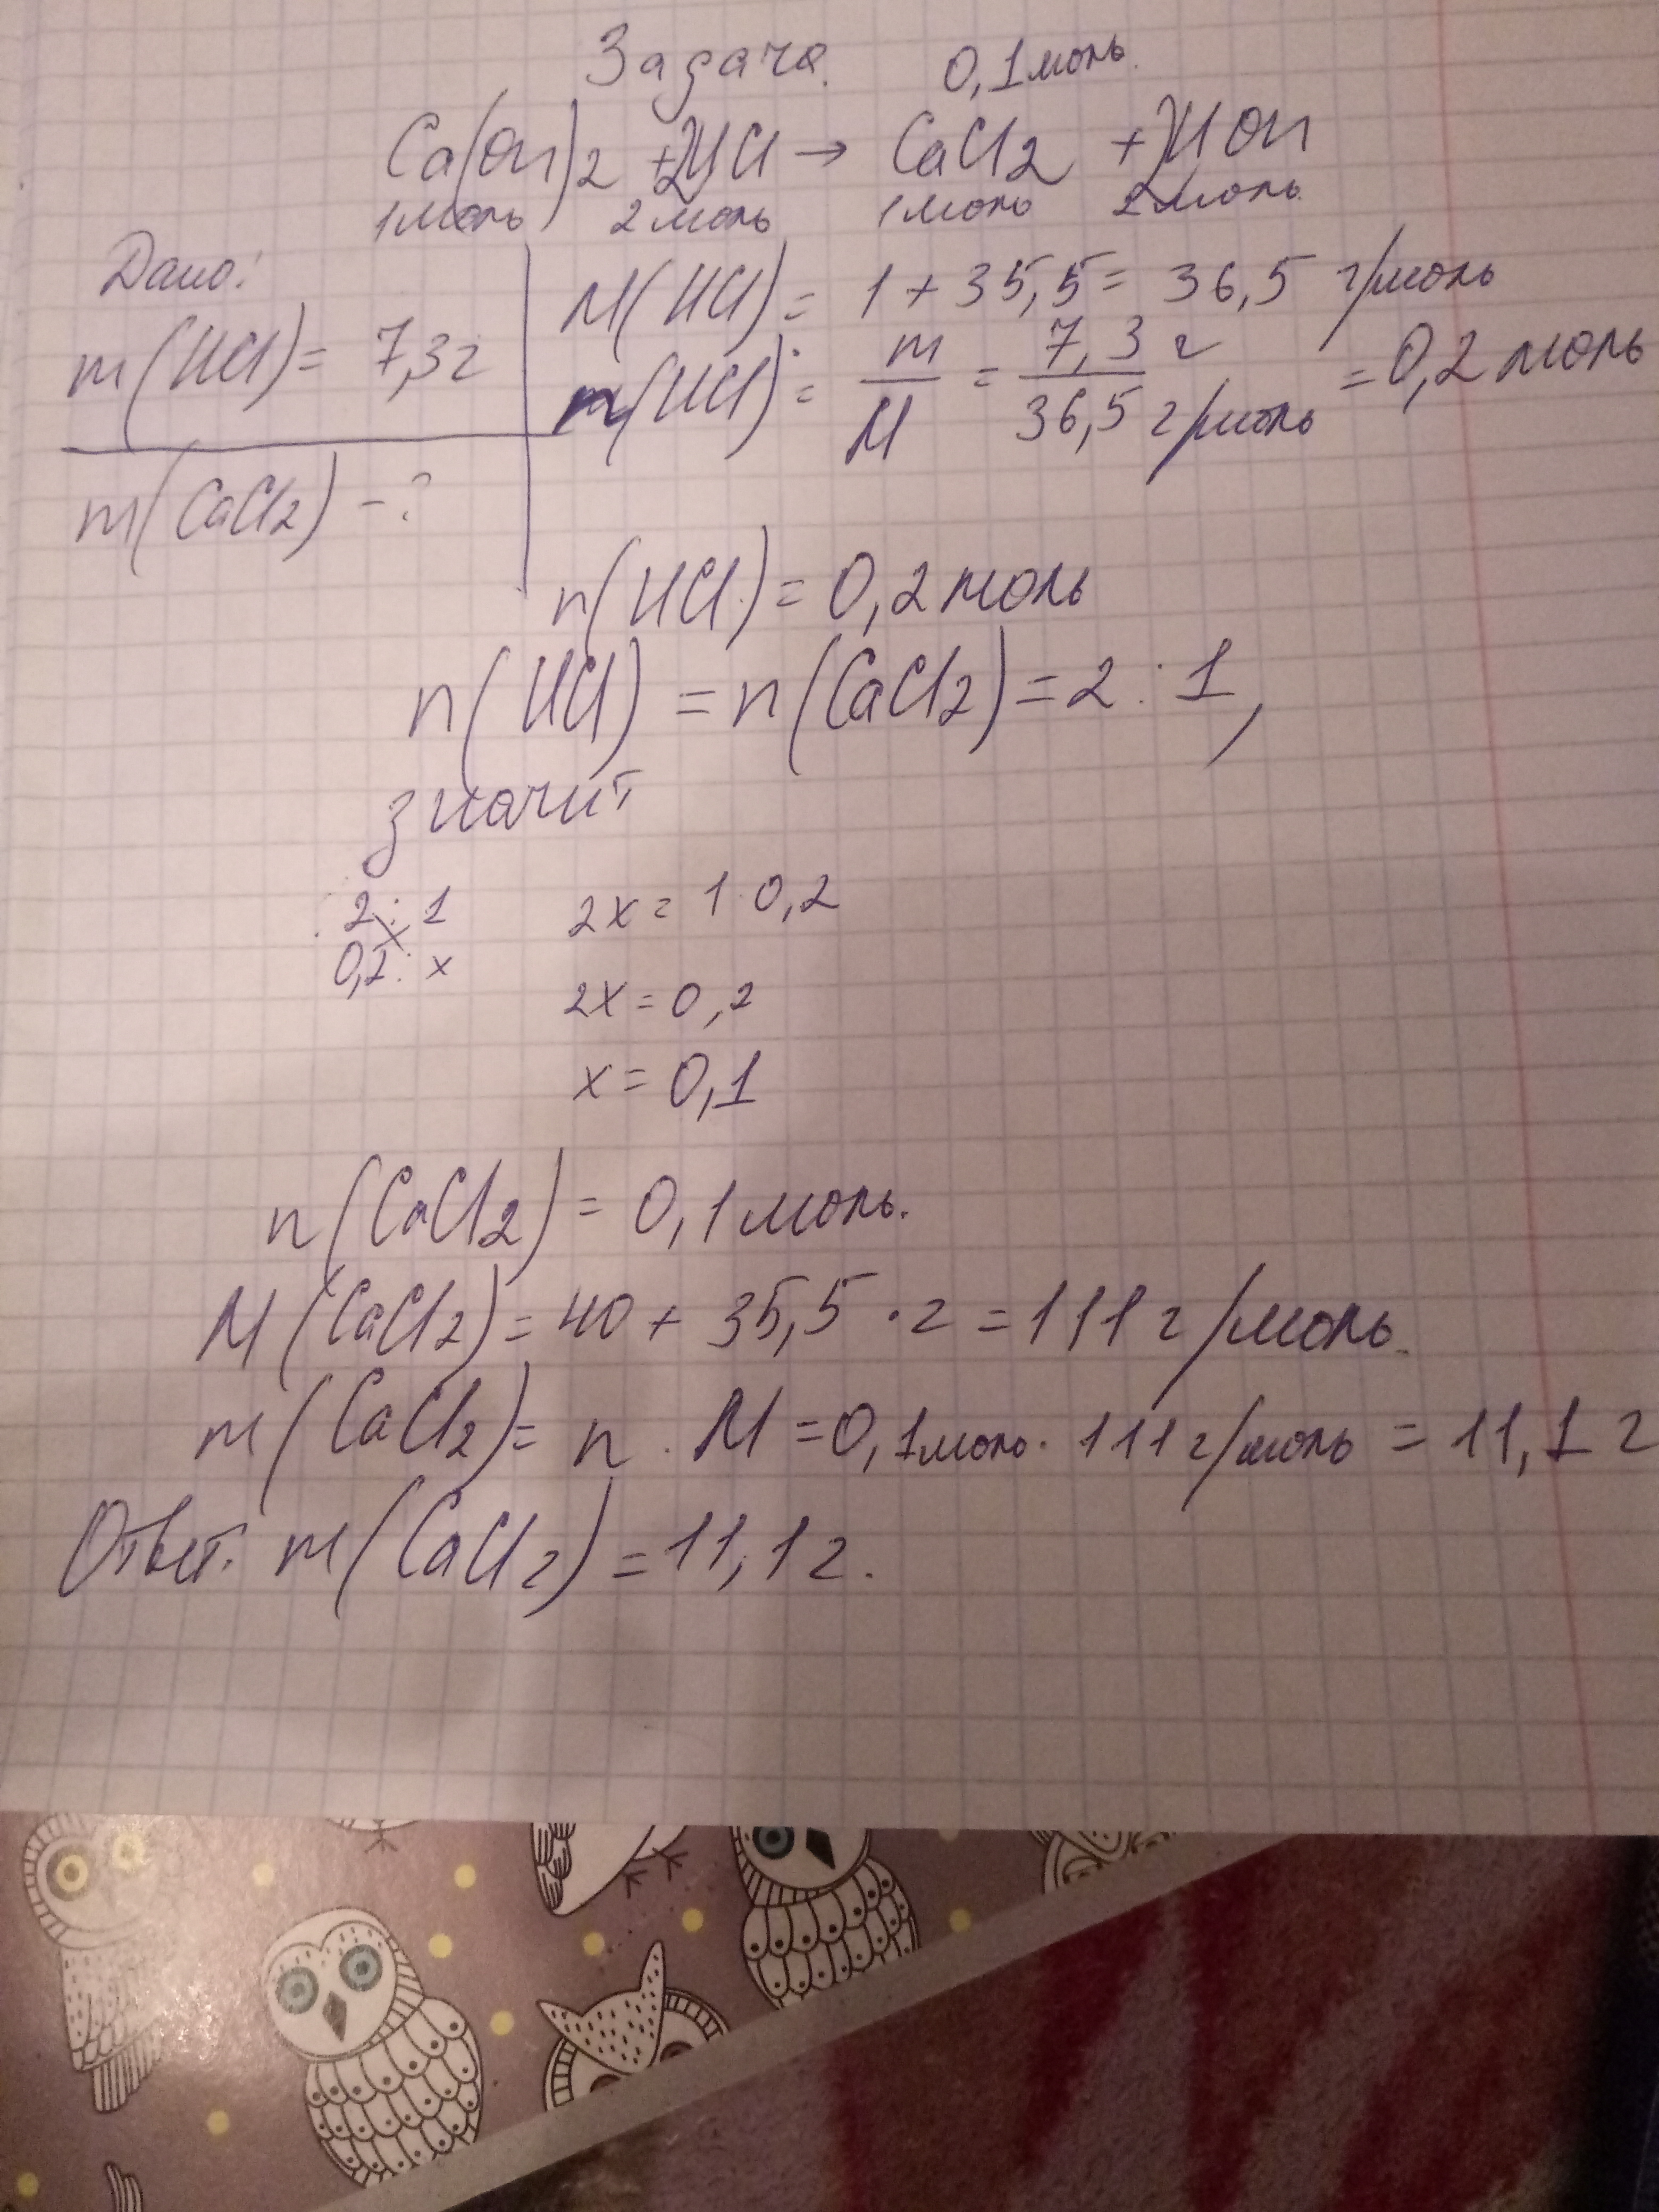 Задача. 0,1 моль.
Ca(OH)2 + 2HCl → CaCl2 + 2HOH
1моль 2 моль 1моль 2моль.
Дано:
m(HCl) = 7,3г
m(CaCl2) - ?
M(HCl) = 1 + 35,5 = 36,5 г/моль
n(HCl) = m/M = 7,3 г/36,5 г/моль = 0,2 моль
n(HCl) = 0,2 моль
n(HCl) = n(CaCl2) = 2 : 1,
значит
2 : 1 2x = 1·0,2
0,2 : x
2x = 0,2
x = 0,1
n(CaCl2) = 0,1 моль.
M(CaCl2) = 40 + 35,5 · 2 = 111 г/моль.
m(CaCl2) = n · M = 0,1моль · 111 г/моль = 11,1 г
Ответ: m(CaCl2) = 11,1 г.